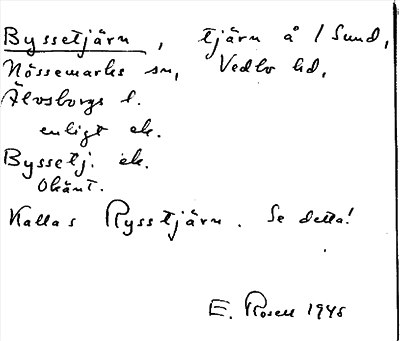 Byssetjärn, tjärn å 1 Sund,
Nössemarks sn, Vedbo hd,
Älvsborgs l.
enligt ek.
Byssetj. ek.
Okänt.
Kallas Rysstjärn. Se detta!
E. Rosell 1945